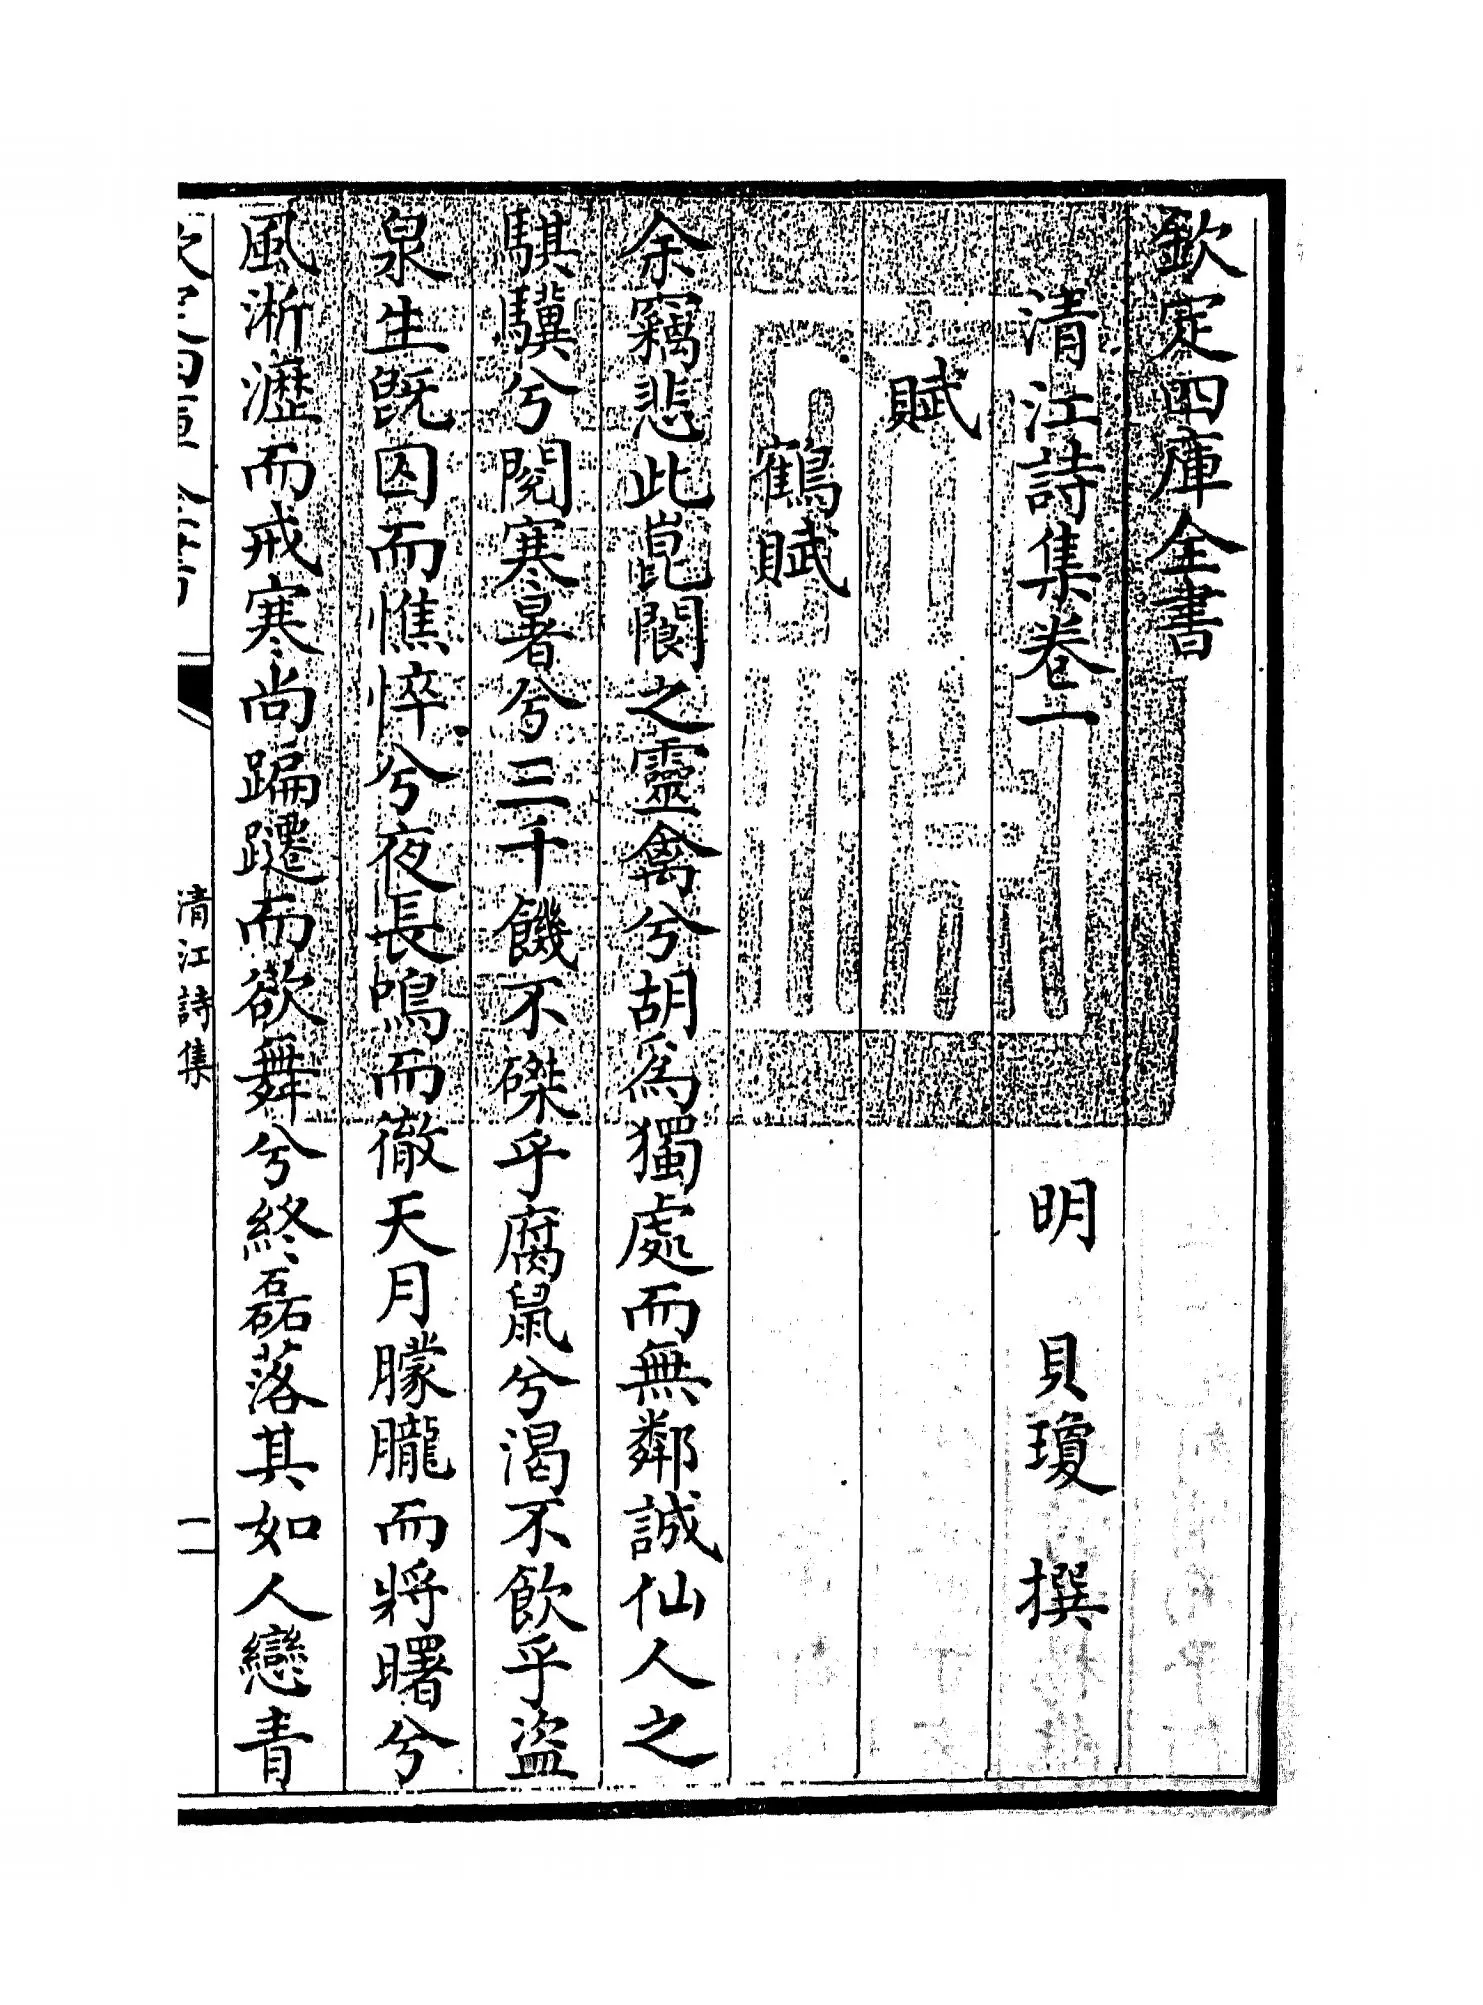 欽定四庫全書
清江詩集卷一
明 貝瓊 撰
賦
鶴賦
余竊悲此崑閬之靈禽兮胡為獨處而無鄰誠仙人之
騏驥兮閱寒暑兮三千饑不磔乎腐鼠兮渴不飲乎盗
泉生既囚而憔悴兮夜長鳴而徹天月朦朧而將曙兮
風淅瀝而戒寒尚蹁躚而欲舞兮終磊落其如人戀青
欽定四庫全書
清江詩集
一